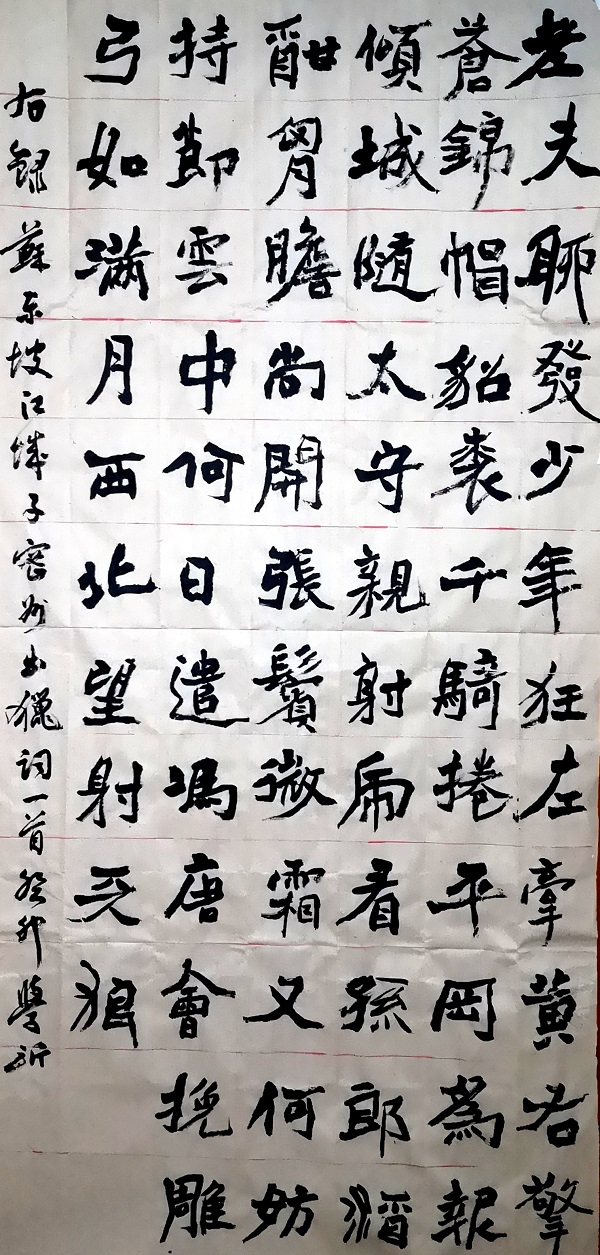 老夫聊發少年狂左牽黃右擎
蒼錦帽貂裘千騎捲平岡為報
傾城隨太守親射虎看孫郎酒
酣胷膽尚開張鬢微霜又何妨
持節雲中何日遣馮唐會挽雕
弓如滿月西北望射天狼
右錄蘇東坡江城子密州出獵詞一首癸卯學新